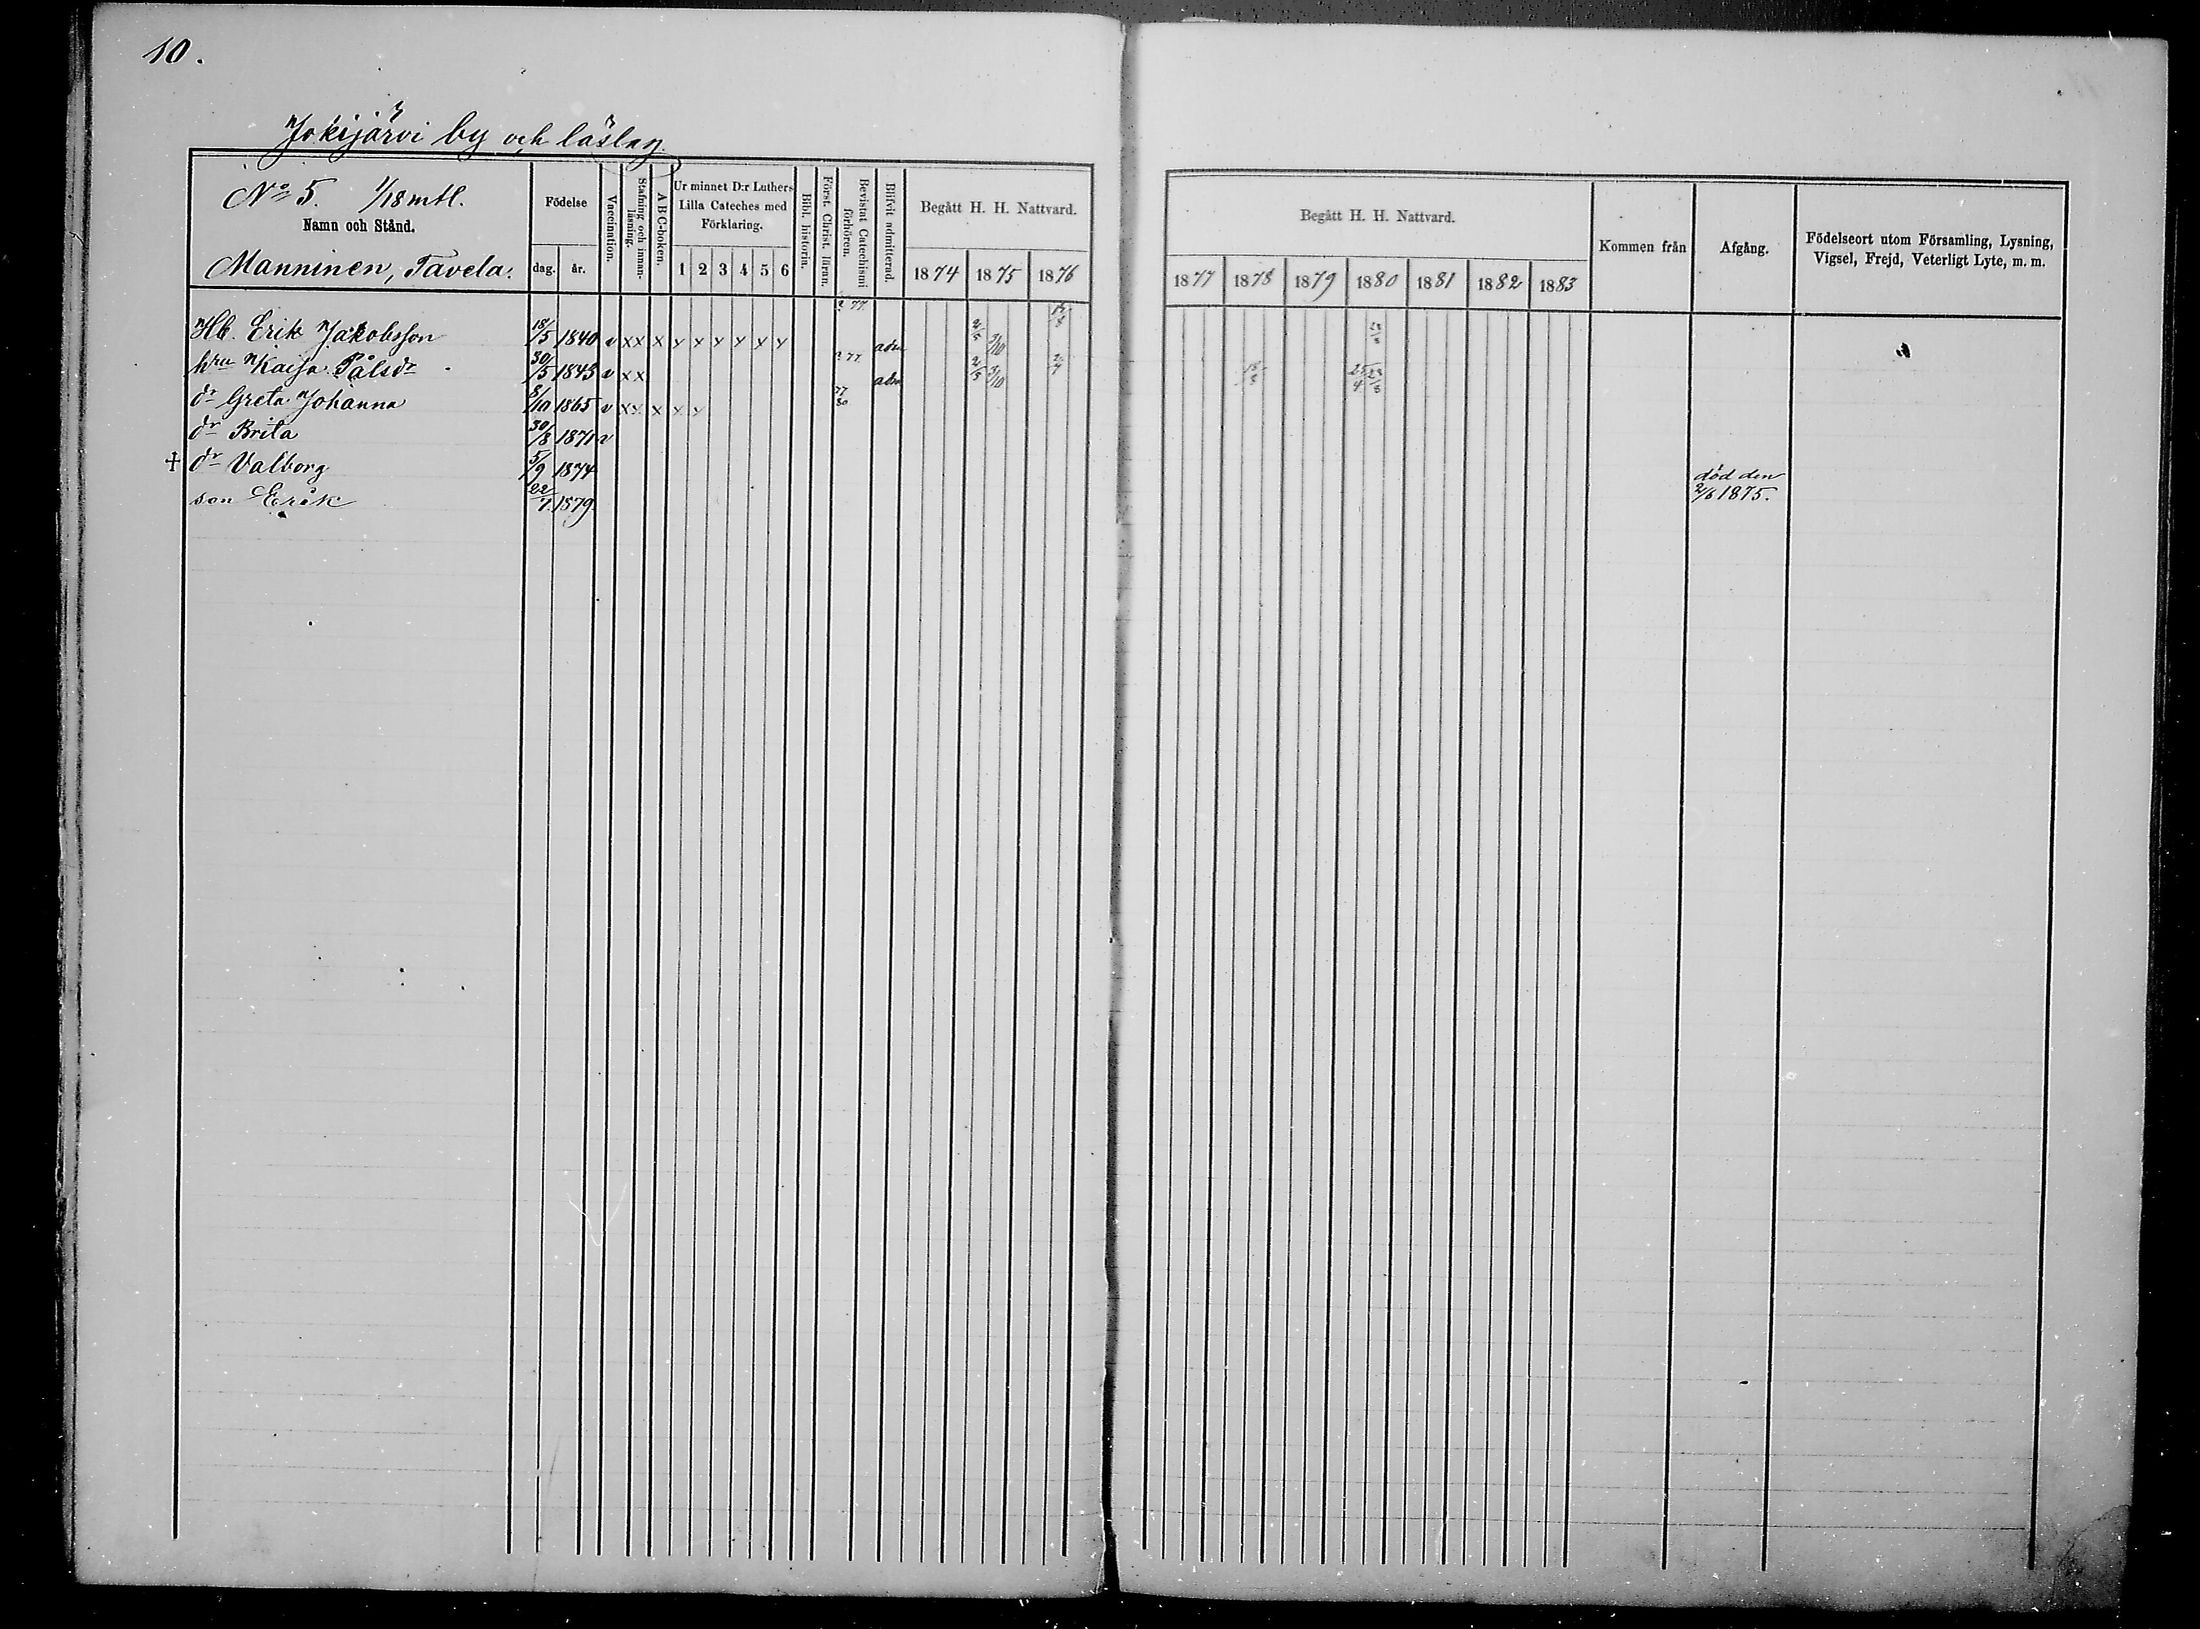 10.
Jokijärvi by och läslag.
No 5. 1/18 mtl.
Namn och Stånd.
Manninen, Tavela.
Födelse
dag. år.
Vaccination.
Stafning och innanläsning.
ABC-boken.
Ur minnet D:r Luthers Lilla Cateches med Förklaring.
1 2 3 4 5 6
Bibl. historia.
Först. Christ. läran.
Bevistat Catechismi förhören.
Blifvit admitterad.
Begått H. H. Nattvard.
1874 1875 1876
Begått H. H. Nattvard.
1877 1878 1879 1880 1881 1882 1883
Kommen från
Afgång.
Födelseort utom Församling, Lysning, Vigsel, Frejd, Veterligt Lyte, m. m.
Hb. Erik Jakobsson 18/5 1840 v x x x y y y y y y 77 adm 2/5 3/10
hru Kaisa Pålsdr 30/5 1843 v x x 77 adm 2/5 3/10
dr Greta Johanna 8/10 1865 v x x x x y 77 80
dr Brita 30/8 1871 v
† dr Valborg 5/9 1874 död den 2/6 1875.
son Erik 22/7 1879